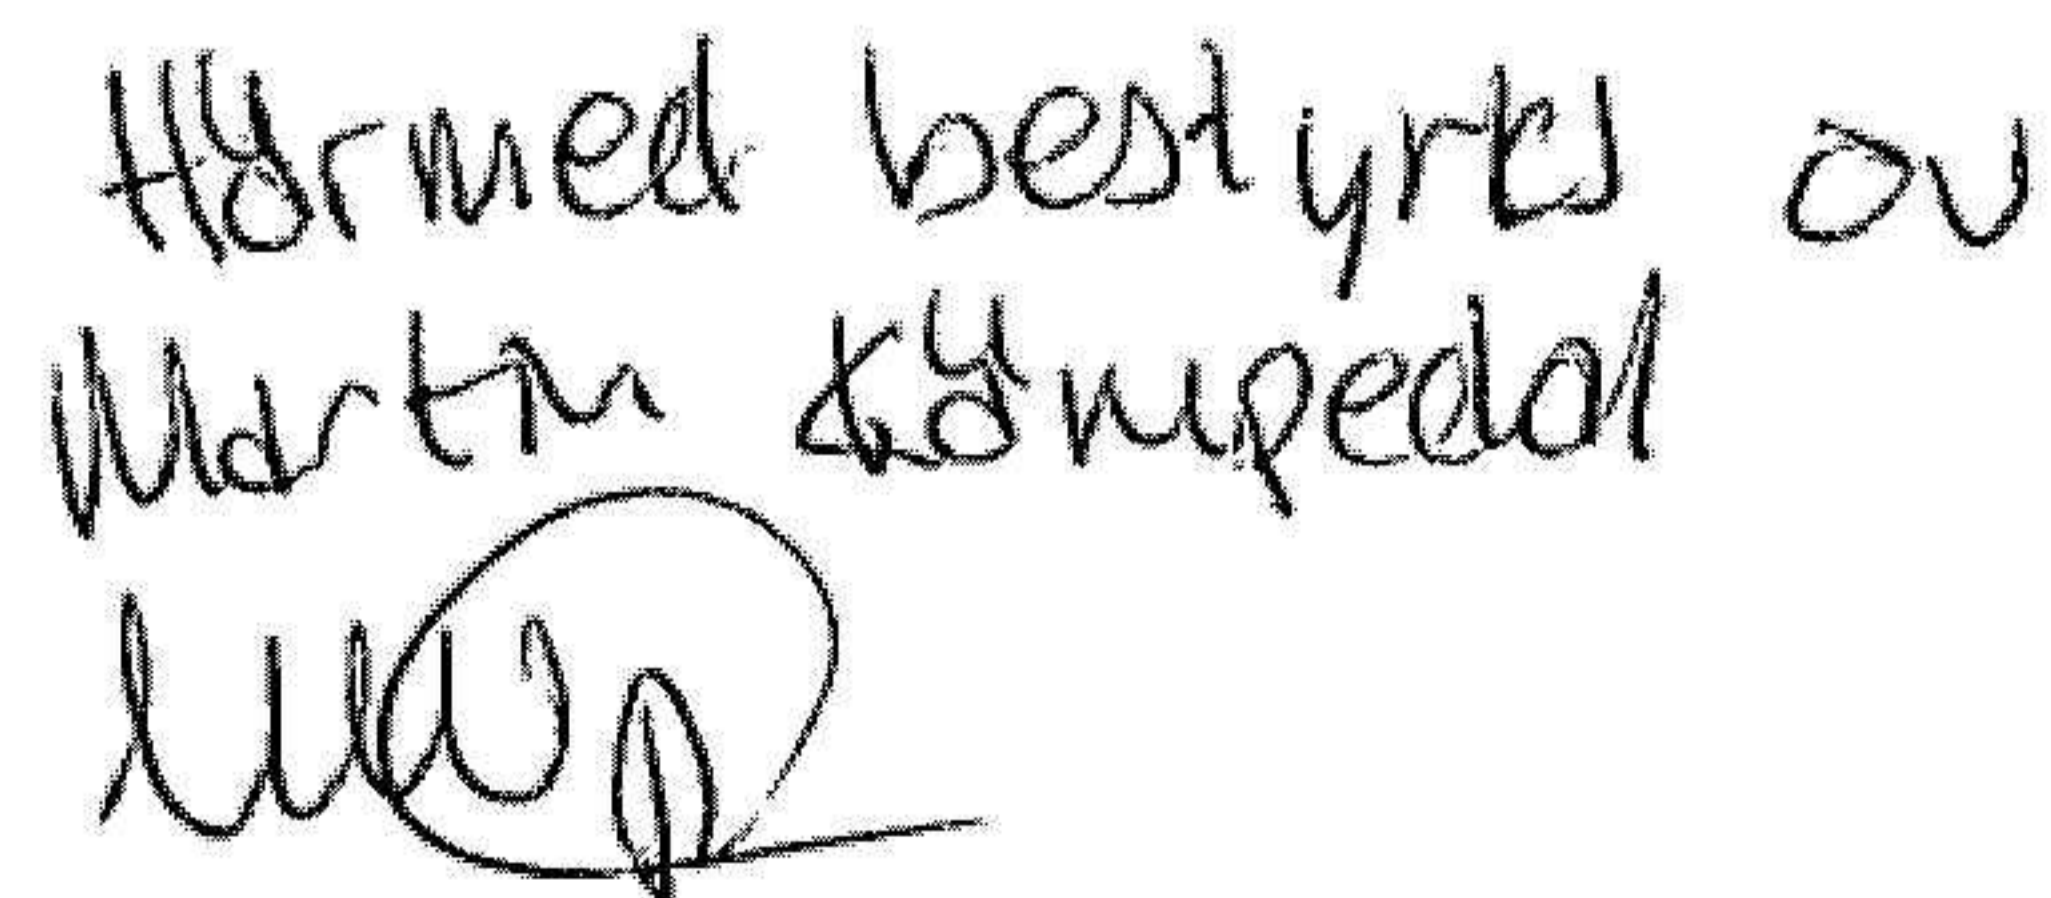 Härmed bestyrks av
Martin Kämpedal